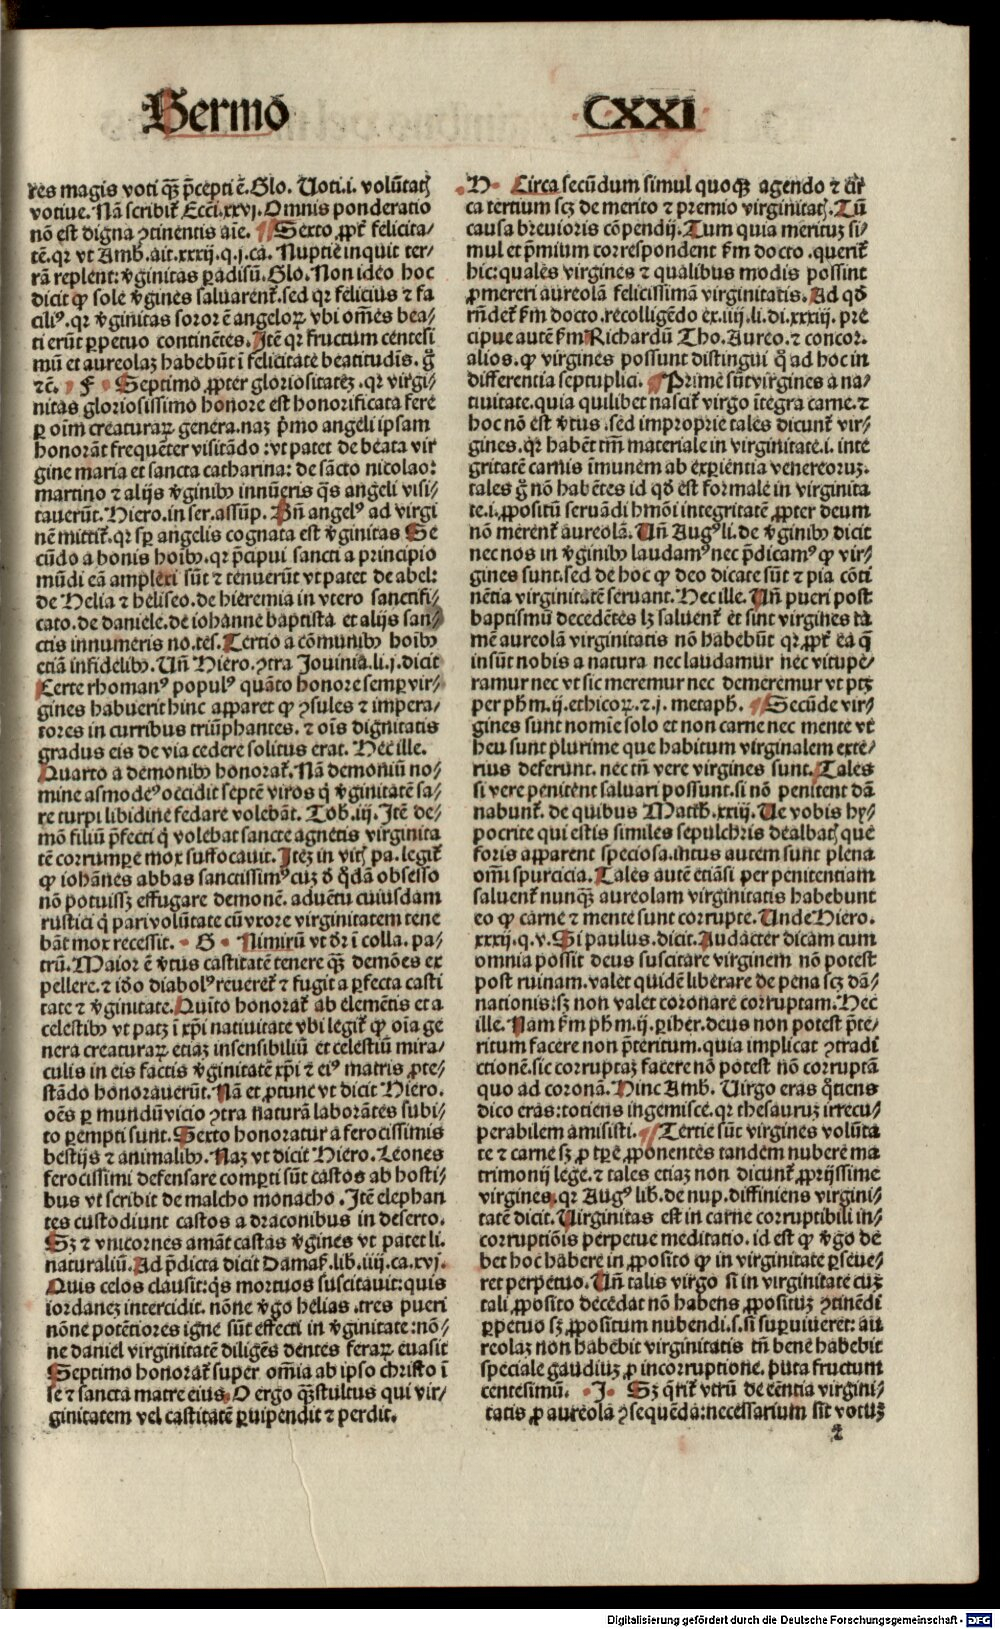 Sermo CXXI
res magis voti qȝ p̄cepti ē. Glo. Uoti .i. volūtatꝭ
votiue. Nā scribit᷑ Ecci. xxvj. Omnis ponderatio
nō est digna ꝯtinentis aīe. Sexto ꝓpt᷑ felicita/
tē. qr vt Amb. ait. xxxij. q. j. ca. Nuptie inquit ter-
rā replent: v̄ginitas ꝑadisū. Glo. Non ideo hoc
dicit ꝙ sole v̄gines saluarent᷑. sed qr felicius ⁊ fa
ciliꝰ. qr v̄ginitas soror ē angeloꝝ vbi om̄es bea/
ti erūt ꝑpetuo continētes. Itē qr fructum centesi
mū et aureolaȝ habebūt ī felicitate beatitudīs. ḡ
⁊cē. F Septimo ꝓpter gloriositatēȝ. qr virgi/
nitas gloriosissimo honore est honorificata fere
ꝑ oīm creaturaꝝ genera. naȝ p̄mo angeli ipsam
honorāt frequēter visitādo: vt patet de beata vir
gine maria et sancta catharina: de sācto nicolao:
martino ⁊ alijs v̄ginibꝰ innūeris q̄s angeli visi/
tauerūt. Hiero. in ser. assūp. Bn̄ angelꝰ ad virgi
nē mittit᷑. qr sp̄ angelis cognata est v̄ginitas Se
cūdo a bonis hoībꝰ. qr p̄cipui sancti a principio
mūdi eā amplexi sūt ⁊ tenuerūt vt patet de abel:
de Helia ⁊ heliseo. de hieremia in vtero sanctifi/
cato. de daniele. de iohanne baptista et alijs san/
ctis innumeris no. tes. Tertio a cōmunibꝰ hoībꝰ
etiā infidelibꝰ. Un̄ Hiero. ꝯtra Jouiniā. li. j. dicit
Certe rhomanꝰ populꝰ quāto honore semꝑ vir/
gines habuerit hinc apparet ꝙ ꝯsules ⁊ impera/
tores in curribus triūphantes. ⁊ oīs dignitatis
gradus eis de via cedere solitus erat. Hec ille.
Quarto a demonibꝰ honorat᷑. Nā demoniū no/
mine asmodeꝰ occidit septē viros q̄ v̄ginitatē sa/
re turpi libidine fedare volebāt. Tob. iij. Itē de/
mō filiū p̄fecti q̄ volebat sancte agnetis virginita
tē corrumꝑe mox suffocauit. Iteȝ in vitꝭ pa. legit᷑
ꝙ iohānes abbas sanctissimꝰ cuȝ d̄ q̄dā obsesso
nō potuissȝ effugare demonē. aduētu cuiusdam
rustici q̄ pari volūtate cū vxore virginitatem tene
bāt mox recessit. G Nimirū vt dr̄ ī colla. pa/
trū. Maior ē v̄tus castitatē tenere qȝ demōes ex
pellere. ⁊ iō diabolꝰ reueret᷑ ⁊ fugit a ꝑfecta casti
tate ⁊ v̄ginitate. Quīto honorat᷑ ab elemētis et a
celestibꝰ vt patȝ ī xp̄i natiuitate vbi legit᷑ ꝙ oīa ge
nera creaturaꝝ etiaȝ insensibiliū et celestiū mira/
culis in eis factis v̄ginitatē xp̄i ⁊ eiꝰ matris ꝓte/
stādo honorauerūt. Nā et ꝓtunc vt dicit Hiero.
oēs ꝑ mundū vicio ꝯtra naturā laborātes subi/
to ꝑempti sunt. Sexto honoratur a ferocissimis
bestijs ⁊ animalibꝰ. Naȝ vt dicit Hiero. Leones
ferocissimi defensare comꝑti sūt castos ab hosti/
bus vt scribit de malcho monacho. Itē elephan
tes custodiunt castos a draconibus in deserto.
Sȝ ⁊ vnicornes amāt castas v̄gines vt patet li.
naturaliū. Ad p̄dicta dicit Damas̄. lib. iiij. ca. xvj.
Quis celos clausit: q̄s mortuos suscitauit: quis
iordaneȝ intercidit. nōne v̄go helias. tres pueri
nōne potētiores igne sūt effecti in v̄ginitate: nō/
ne daniel virginitatē diligēs dentes feraꝝ euasit
Septimo honorat᷑ super om̄ia ab ipso christo ī
se ⁊ sancta matre eius. O ergo qȝ stultus qui vir/
ginitatem vel castitatē ꝑuipendit ⁊ perdit.
H Circa secūdum simul quoqȝ agendo ⁊ cir
ca tertium scȝ de merito ⁊ premio virginitatꝭ. Tū
causa breuioris cōpendij. Tum quia merituȝ si/
mul et p̄mium correspondent s̄m docto. querit᷑
hic: quales virgines ⁊ qualibus modis possint
ꝓmereri aureolā felicissimā virginitatis. Ad qd̄
rn̄det᷑ s̄m docto. recolligēdo ex. iiij. li. di. xxxiij. pre
cipue autē s̄m Richardū Tho. Aureo. ⁊ concor.
alios. ꝙ virgines possunt distingui q̄ ad hoc in
differentia septuplici. Prime sūt virgines a na/
tiuitate. quia quilibet nascit᷑ virgo ītegra carne. ⁊
hoc nō est v̄tus. sed improprie tales dicunt᷑ vir/
gines. qr habēt tm̄ materiale in virginitate. i. inte
gritatē carnis īmunem ab exꝑiētia venereoruȝ.
tales ḡ nō habētes id qd̄ est formale in virginita
te. i. ꝓpositū seruādi hmōi integritatē ꝓpter deum
nō merent᷑ aureolā. Un̄ Augꝰ li. de v̄ginibꝰ dicit
nec nos in v̄ginibꝰ laudamꝰ nec p̄dicamꝰ ꝙ vir/
gines sunt. sed de hoc ꝙ deo dicate sūt ⁊ pia cōti
nētia virginitatē seruant. Hec ille. Un̄ pueri post
baptismū decedētes lȝ saluent᷑ et sint virgines ta
mē aureolā virginitatis nō habebūt qr ꝓpt᷑ ea q̄
insūt nobis a natura nec laudamur nec vitupe/
ramur nec vt sic meremur nec demeremur vt ptȝ
per ph̄m. ij. ethicoꝝ. ⁊. j. metaph̄. Secūde vir/
gines sunt nomīe solo et non carne nec mente vt
heu sunt plurime que habitum virginalem exte/
rius deferunt. nec tn̄ vere virgines sunt. Tales
si vere penitēt saluari possunt. si nō penitent dā
nabunt᷑. de quibus Matth̄. xxiij. Ue vobis hy/
pocrite qui estis similes sepulchris dealbatꝭ que
foris apparent speciosa. intus autem sunt plena
om̄i spurcicia. Tales autē etiāsi per penitentiam
saluent᷑ nunqȝ aureolam virginitatis habebunt
eo ꝙ carne ⁊ mente sunt corrupte. Unde Hiero.
xxxij. q. v. Si paulus. dicit. Audacter dicam cum
omnia possit deus suscitare virginem nō potest
post ruinam. valet quidē liberare de pena scȝ dā/
nationis: sȝ non valet coronare corruptam. Hec
ille. Nam s̄m ph̄m. ij. ꝑiher. deus non potest p̄te/
ritum facere non p̄teritum. quia implicat ꝯtradi
ctionē. sic corruptaȝ facere nō potest nō corruptā
quo ad coronā. Hinc Amb. Uirgo eras q̄tiens
dico eras: totiens ingemisce. qr thesauruȝ irrecu/
perabilem amisisti. Tertie sūt virgines volūta
te ⁊ carne sȝ ꝓ tp̄e ꝓponentes tandem nubere ma
trimonij lege. ⁊ tales etiaȝ non dicunt᷑ ꝓprijssime
virgines. qr Augꝰ lib. de nup. diffiniens virgini/
tatē dicit. Uirginitas est in carne corruptibili in/
corruptiōis perpetue meditatio. id est ꝙ v̄go de
bet hoc habere in ꝓposito ꝙ in virginitate ꝑseue/
ret perpetuo. Un̄ talis virgo si in virginitate cuȝ
tali ꝓposito decedat nō habens ꝓposituȝ ꝯtinēdi
ꝑpetuo sȝ ꝓpositum nubendi. s. si suꝑuiueret: au
reolaȝ non habebit virginitatis tn̄ bene habebit
speciale gaudiuȝ ꝓ incorruptione. puta fructum
centesimū. J Sȝ q̄rit᷑ vtrū decentia virgini/
tatis ꝓ aureola ꝯsequēda: necessarium sit votuȝ
2
Digitalisierung gefördert durch die Deutsche Forschungsgemeinschaft - DFG